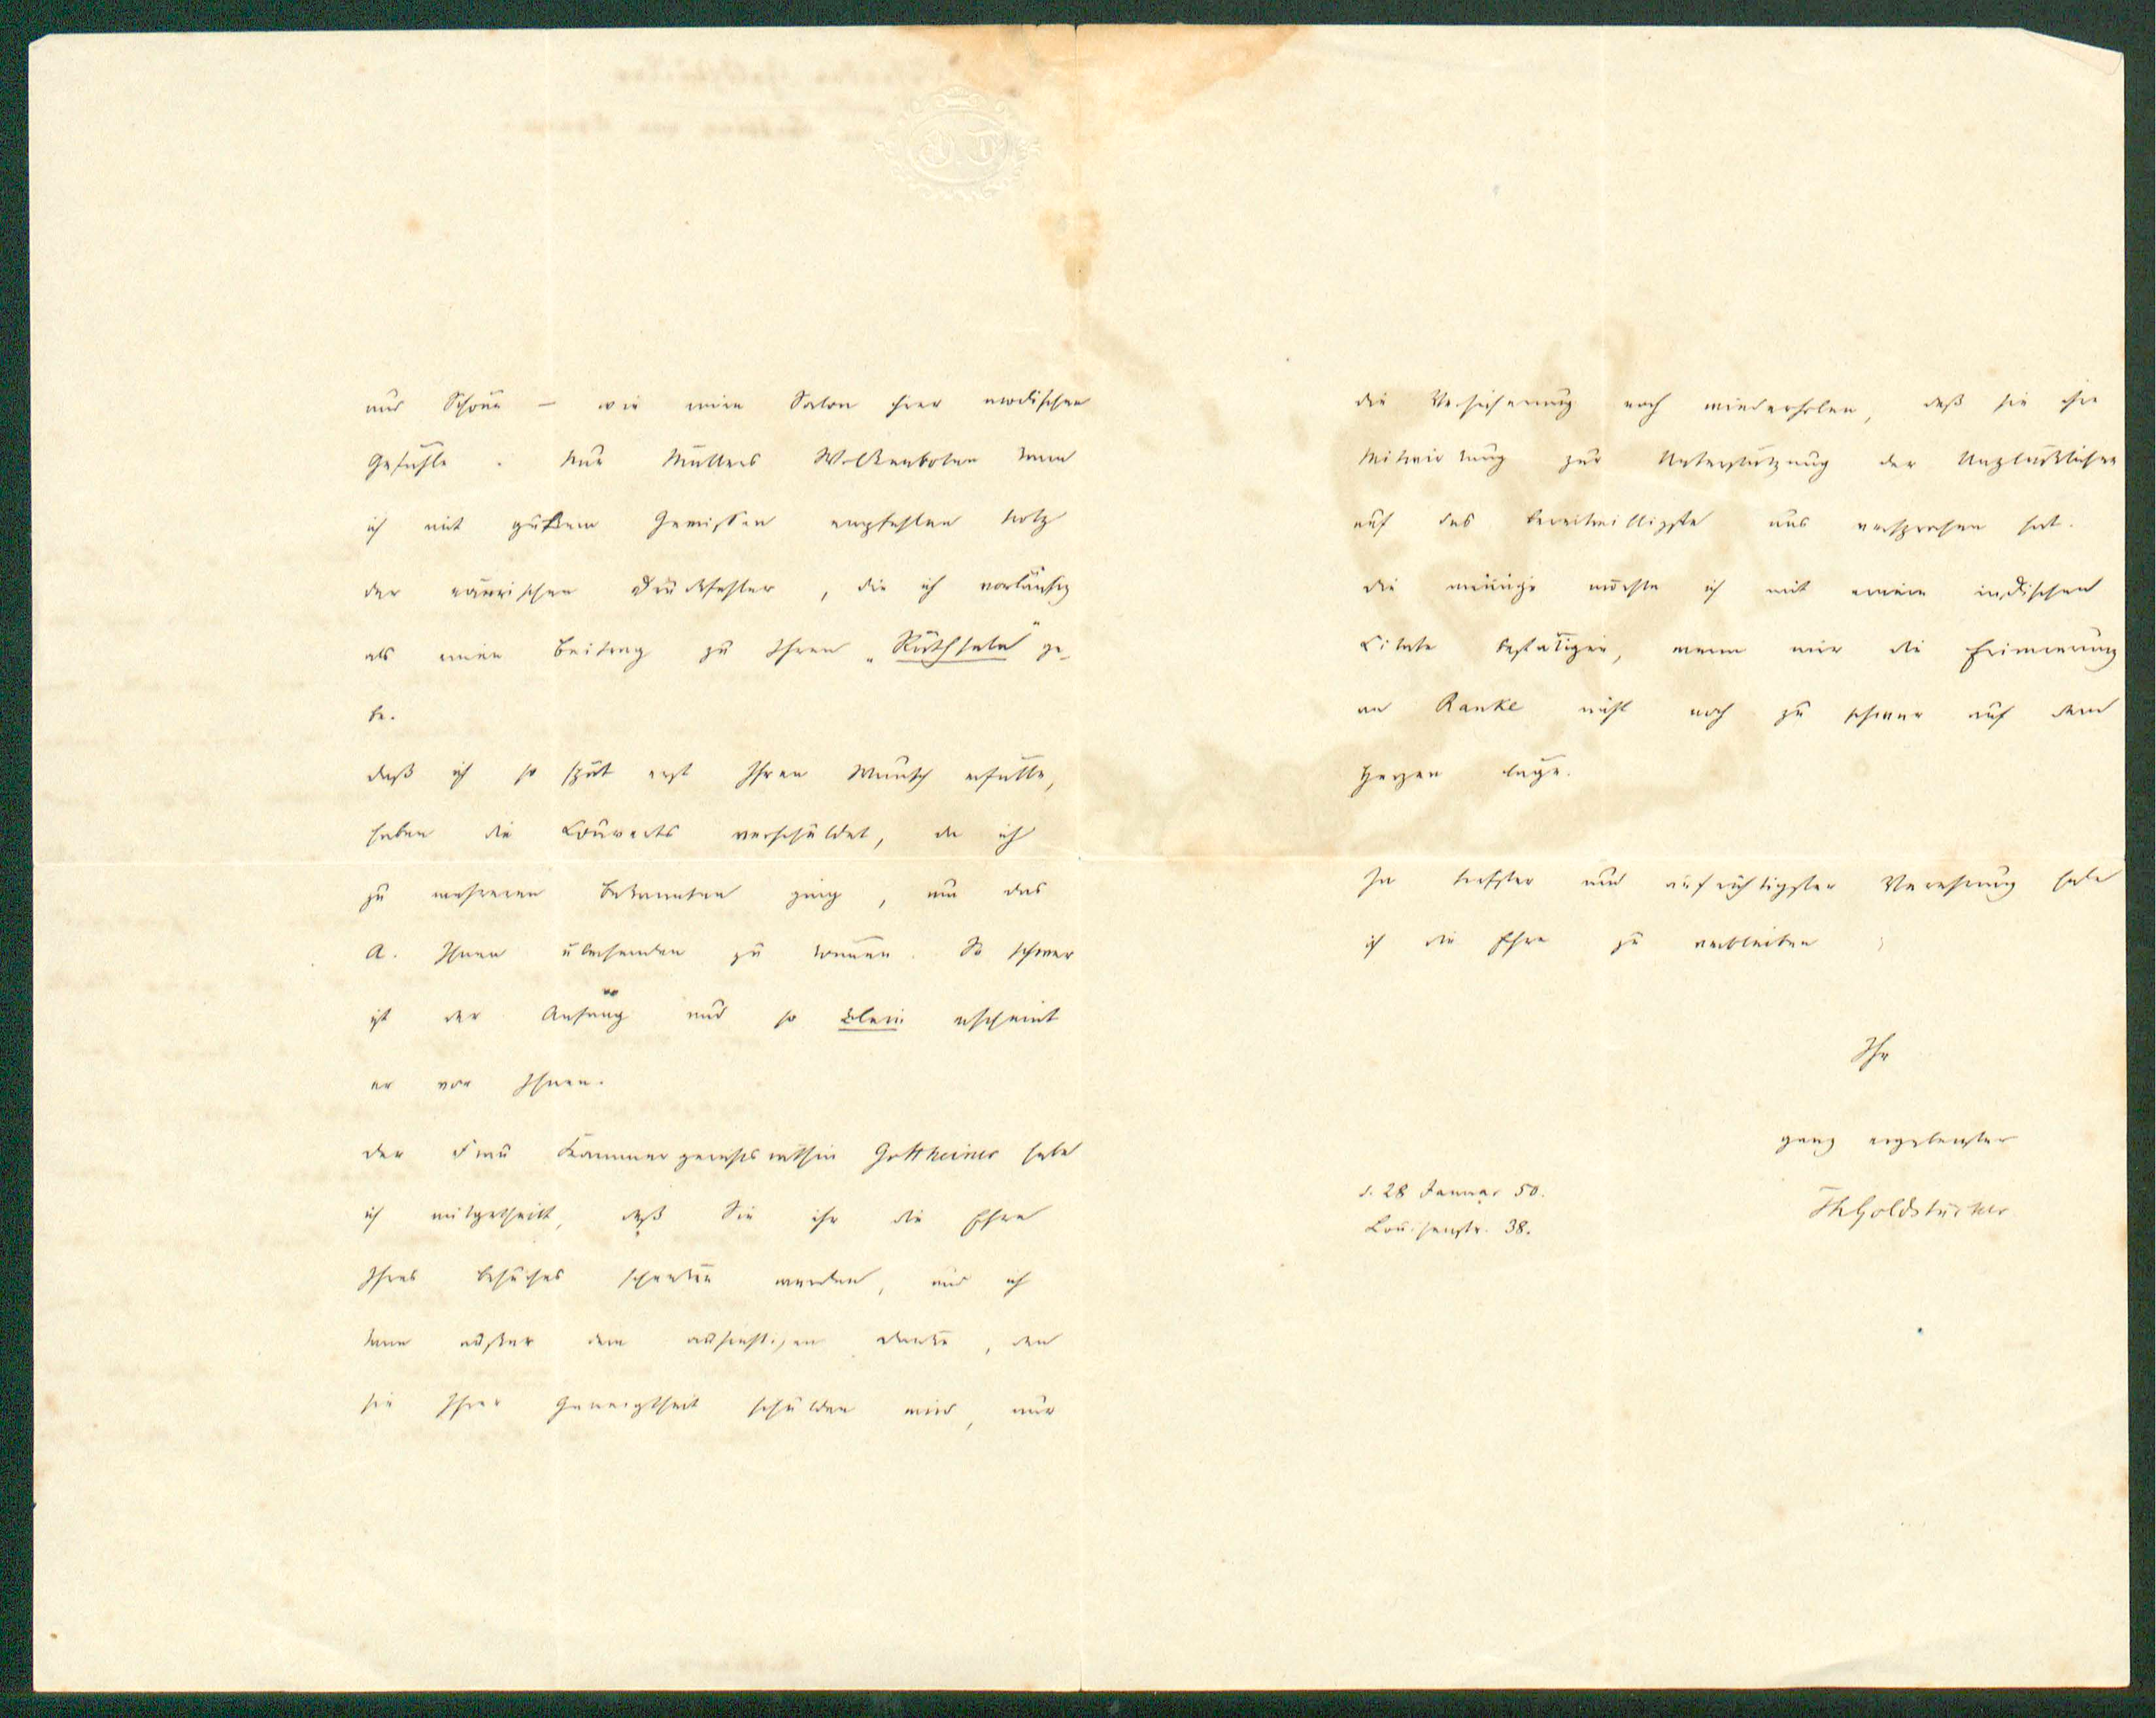 und Schöne – wie eine Salon ihrer modischen
Gefühle. Nur Müllers Wolkenboten kann
ich mit gutem Gewissen empfehlen trotz
der närrischen Druckfehler, die ich vorläufig
als einen Beitrag zu Ihren „Räthseln" ge-
be.
Daß ich so spät erst Ihren Wunsch erfülle,
haben die Couverts verschuldet, da ich
zu mehreren Bekannten ging, um das
A. Ihnen übersenden zu können. So schwer
ist der Anfang und so klein erscheint
er vor Ihnen.
Der Frau Kammergerichtsräthin Gottheiner habe
ich mitgetheilt, daß Sie ihr die Ehre
Ihres Besuches schenken werden, und ich
kann außer dem Danke, den
sie Ihrer Geneigtheit schulden wird, nur
die Versicherung noch wiederholen, daß sie ihre
Mitwirkung zur Unterstützung der Unglücklichen
auf das bereitwilligste uns versprochen hat.
Die meinige möchte ich mit einem indischen
Citate bestätigen, wenn mir die Erinnerung
an Ranke nicht noch zu schwer auf dem
Herzen läge.
In tiefster und aufrichtigster Verehrung habe
ich die Ehre zu verbleiben
Ihr
ganz ergebenster
ThGoldstücker
d. 28 Januar 50.
Louisenstr. 38.